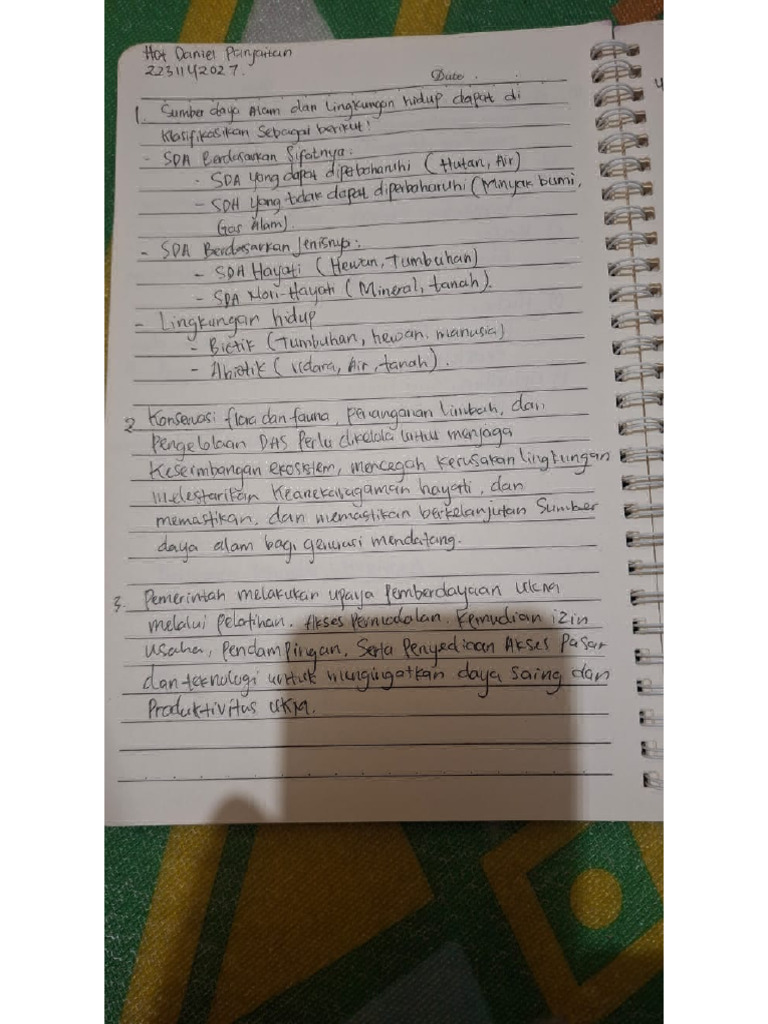 Hot Daniel Panjaitan
2231142027.
Date .
1. Sumber daya Alam dan Lingkungan hidup dapat di
klasifikasikan Sebagai berikut:
- SDA Berdasarkan Sifatnya:
- SDA yang dapat diperbaharuhi (Hutan, Air)
- SDA yang tidak dapat diperbaharuhi (Minyak bumi,
Gas Alam).
- SDA Berdasarkan Jenisnya:
- SDA Hayati (Hewan, Tumbuhan)
- SDA Non-Hayati (Mineral, tanah).
- Lingkungan hidup
- Biotik (Tumbuhan, hewan, manusia)
- Abiotik (Udara, Air, tanah).
2 Konservasi flora dan fauna, penanganan limbah, dan
Pengelolaan DAS Perlu dikelola untuk menjaga
Keseimbangan ekosistem, mencegah kerusakan lingkungan
melestarikan Keanekaragaman hayati, dan
memastikan, dan memastikan berkelanjutan Sumber
daya alam bagi generasi mendatang.
3. Pemerintah melakukan upaya Pemberdayaan UKM
melalui Pelatihan, Akses Permodalan, Kemudian izin
usaha, Pendampingan, Serta Penyediaan Akses Pasar
dan teknologi untuk mengingatkan daya saing dan
Produktivitas UKM.